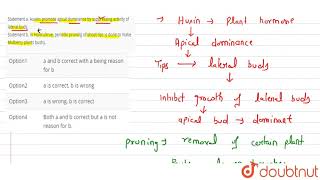 Statement a. Auxins promote apical dominance by suppressing activity of
lateral buds.
Statement b. In Horticulture, periodic pruning of shoot tips is done to make
Mulberry plants bushy.
Option1 a and b correct with a being reason
for b
Option2 a is correct, b is wrong
Option3 a is wrong, b is correct
Option4 Both a and b correct but a is not
reason for b.
→ Auxin → Plant hormone
→ Apical dominance
Tips → lateral buds
Inhibit growth of lateral buds
apical bud → dominant
pruning → removal of certain plant
doubtnut